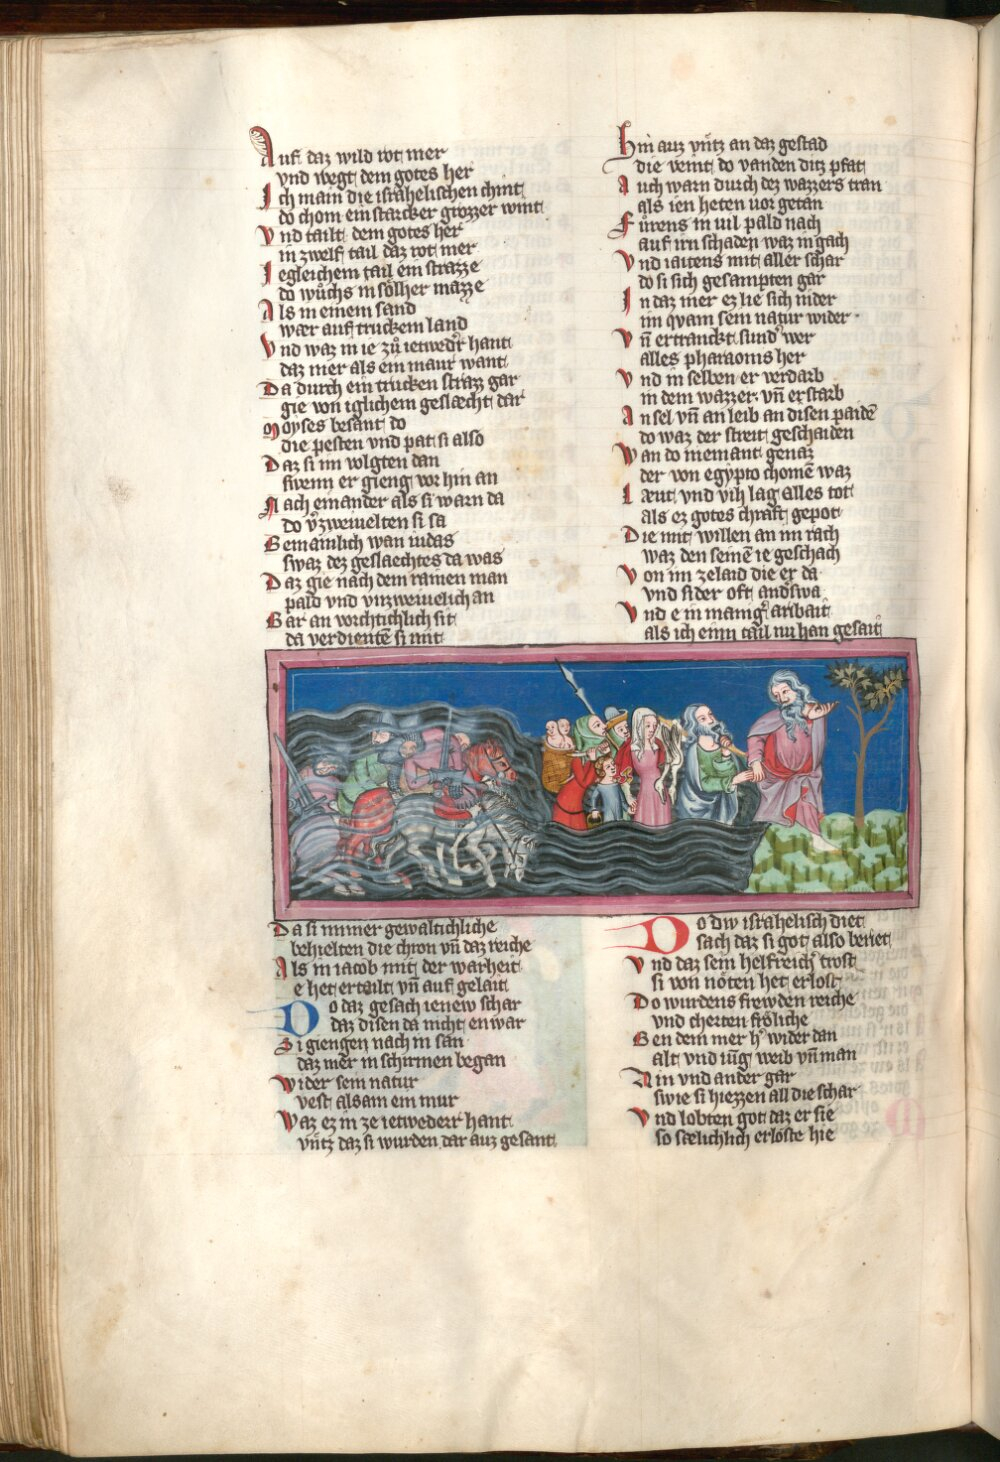 Auf daz wild rot mer
vnd wegt dem gotes her
Ich main die israhelischen chint
do chom ein starcker grozzer wint
Vnd tailt dem gotes her
in zwelf tail daz rot mer
Iegleichem tail ein strazze
do wůchs in sölher mazze
Als in einem sand
wær auf truckem land
Vnd waz in ie zů ietwedr hant
daz mer als ein maur want
Da durch ein trucken strazz gar
gie von iglichem geslæcht dar
Moyses besant do
die pesten vnd pat si also
Daz si im volgten dan
swenn er gieng vor hin an
Nach einander als si warn da
do v̾zweiuelten si sa
Gemainlich wan iudas
swaz dez geslaechtes da was
Daz gie nach dem rainen man
pald vnd vnzweiuelich an
Gar an vorchtichlich sit
da verdientē si mit
Da si immer gewaltichliche
behielten die chron vn̄ daz reiche
Als in iacob mit der warheit
e het erteilt vn̄ auf gelait
Do daz gesach ienew schar
daz disen da nicht en war
Si giengen nach in san
daz mer in schirmen began
Wider sein natur
vest alsam ein mur
Waz ez in ze ietwederr hant
vn̄tz daz si wurden dar auz gesant
Hin auz vn̄tz an daz gestad
die veint do vanden ditz pfat
Auch warn durch dez wazzers tran
als ien heten uor getan
Fůrens in uil pald nach
auf irn schaden waz in gach
Vnd iaitens mit aller schar
do si sich gesampten gar
In daz mer ez lie sich nider
im qvam sein natur wider
Vn̄ ertranckt sund̾ wer
alles pharaonis her
Vnd in selben er verdarb
in dem wazzer vn̄ erstarb
An sel vn̄ an leib an disen paidē
do waz der streit geschaiden
Wan do niemant genaz
der von egypto chomē waz
Læut vnd vih lag alles tot
als ez gotes chraft gepot
Die mit willen an im rach
waz den seinē ie geschach
Von im ze laid die er da
vnd sider oft and̾swa
Vnd e in manig̾ aribait
als ich einn tail nu han gesait
Do diw israhelisch diet
sach daz si got also beriet
Vnd daz sein helfreich trost
si von nöten het erlost
Do wurdens frewden reiche
vnd cherten fröliche
Gen dem mer h̾ wider dan
alt vnd iūg weib vn̄ man
Ain vnd ander gar
swie si hiezzen all die schar
Vnd lobten got daz er sie
so sælichlich erlöste hie